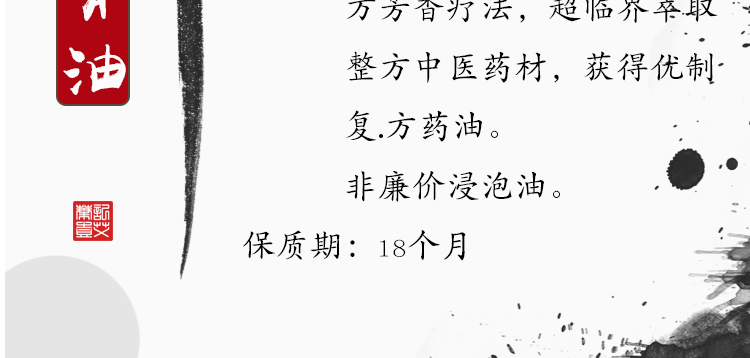 方芳香疗法，超临界萃取
整方中医药材，获得优制
复.方药油。
非廉价浸泡油。
保质期：18个月
油